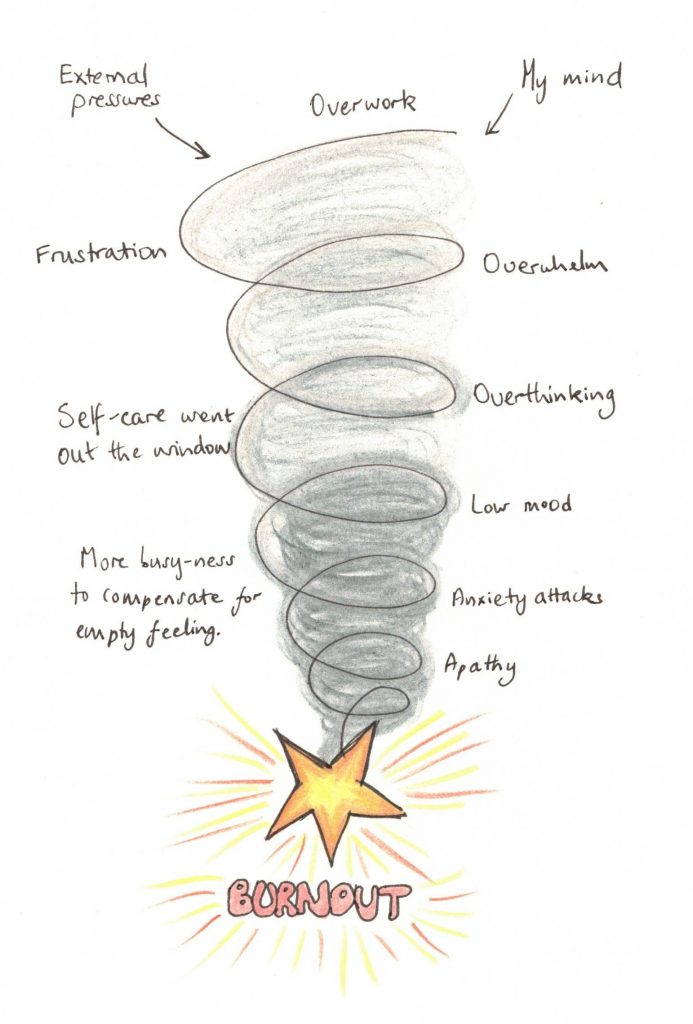 External
pressures
Overwork
My mind
Frustration
Overwhelm
Overthinking
Self-care went
out the window
Low mood
More busy-ness
to compensate for
empty feeling.
Anxiety attacks
Apathy
BURNOUT